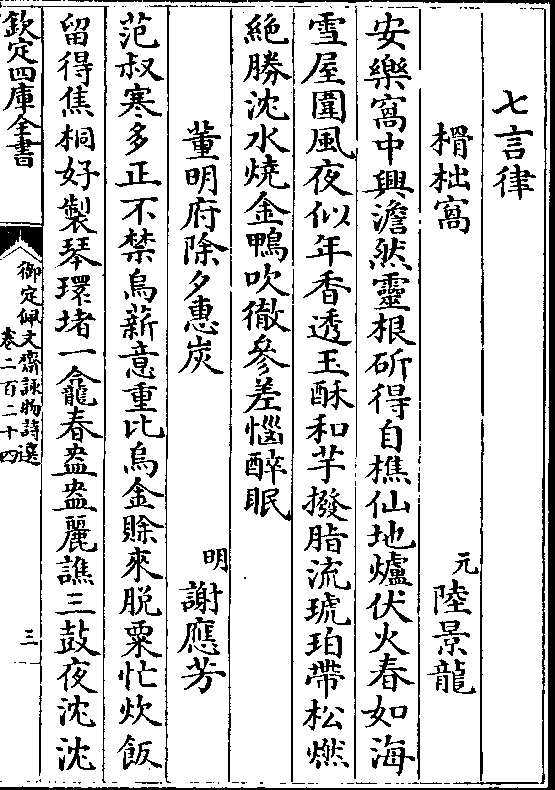 七言律
榾柮窩
元陸景龍
安樂窩中興澹然靈根斫得自樵仙地爐伏火春如海
雪屋圍風夜似年香透玉酥和芋撥脂流琥珀帶松燃
絶勝沈水燒金鴨吹徹參差惱醉眠
董明府除夕惠炭
明謝應芳
范叔寒多正不禁烏薪意重比烏金賖來脱粟忙炊飯
留得焦桐好製琴環堵一龕春盎盎麗譙三鼓夜沈沈
欽定四庫全書
御定佩文齋詠物詩選
卷二百二十四
三